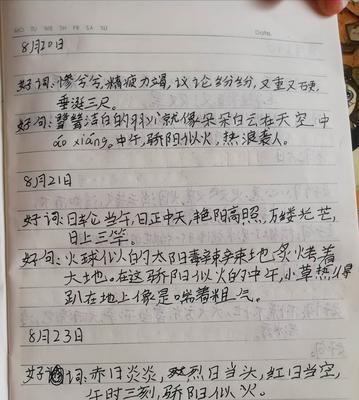 MO TU WE TH FR SA SU Date.
8月20日
好词:惨兮兮,精疲力竭,议论纷纷,又重又硬,
垂涎三尺。
洁白的羽心就像朵朵白云在天空中
áo xiáng。中午,骄阳似火,热浪袭人。
8月21日
好词:日轮当午,日正中天,艳阳高照,万缕光芒,
日上三竿。
好句:火球似的太阳毒辣辣地炙烤着
大地。在这骄阳似火的中午,小草热得
趴在地上像是喘着粗气。
8月23日
好词:赤日炎炎,烈日当头,红日当空,
午时三刻,骄阳似火。